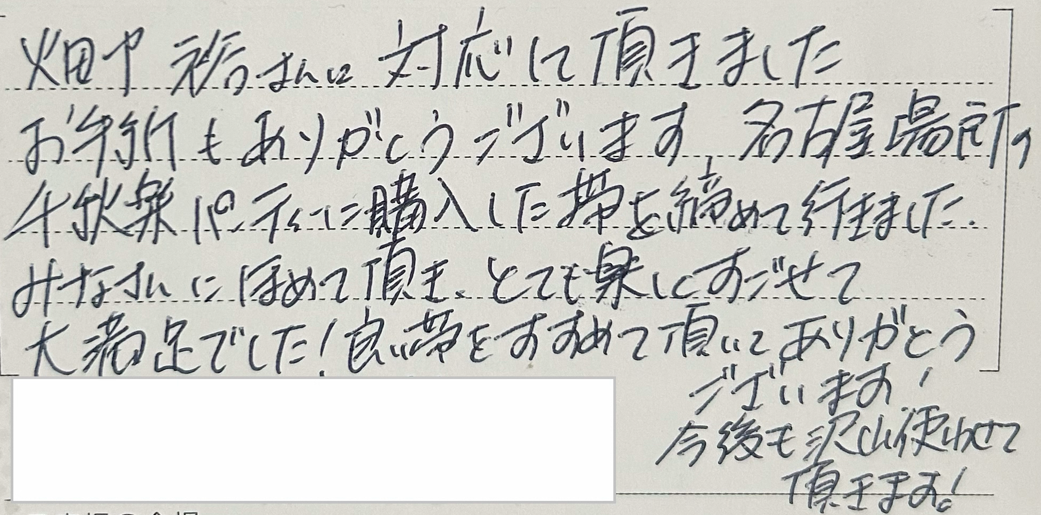 畑中 裕さんに 対応して頂きました
お手紙もありがとうございます、名古屋場所の
千秋楽パーティーに購入した帯を締めて行きました。
みなさんにほめて頂き、とても楽しくすごせて
大満足でした！良い帯をすすめて頂いてありがとう
ございます！
今後も沢山使わせて
頂きます！